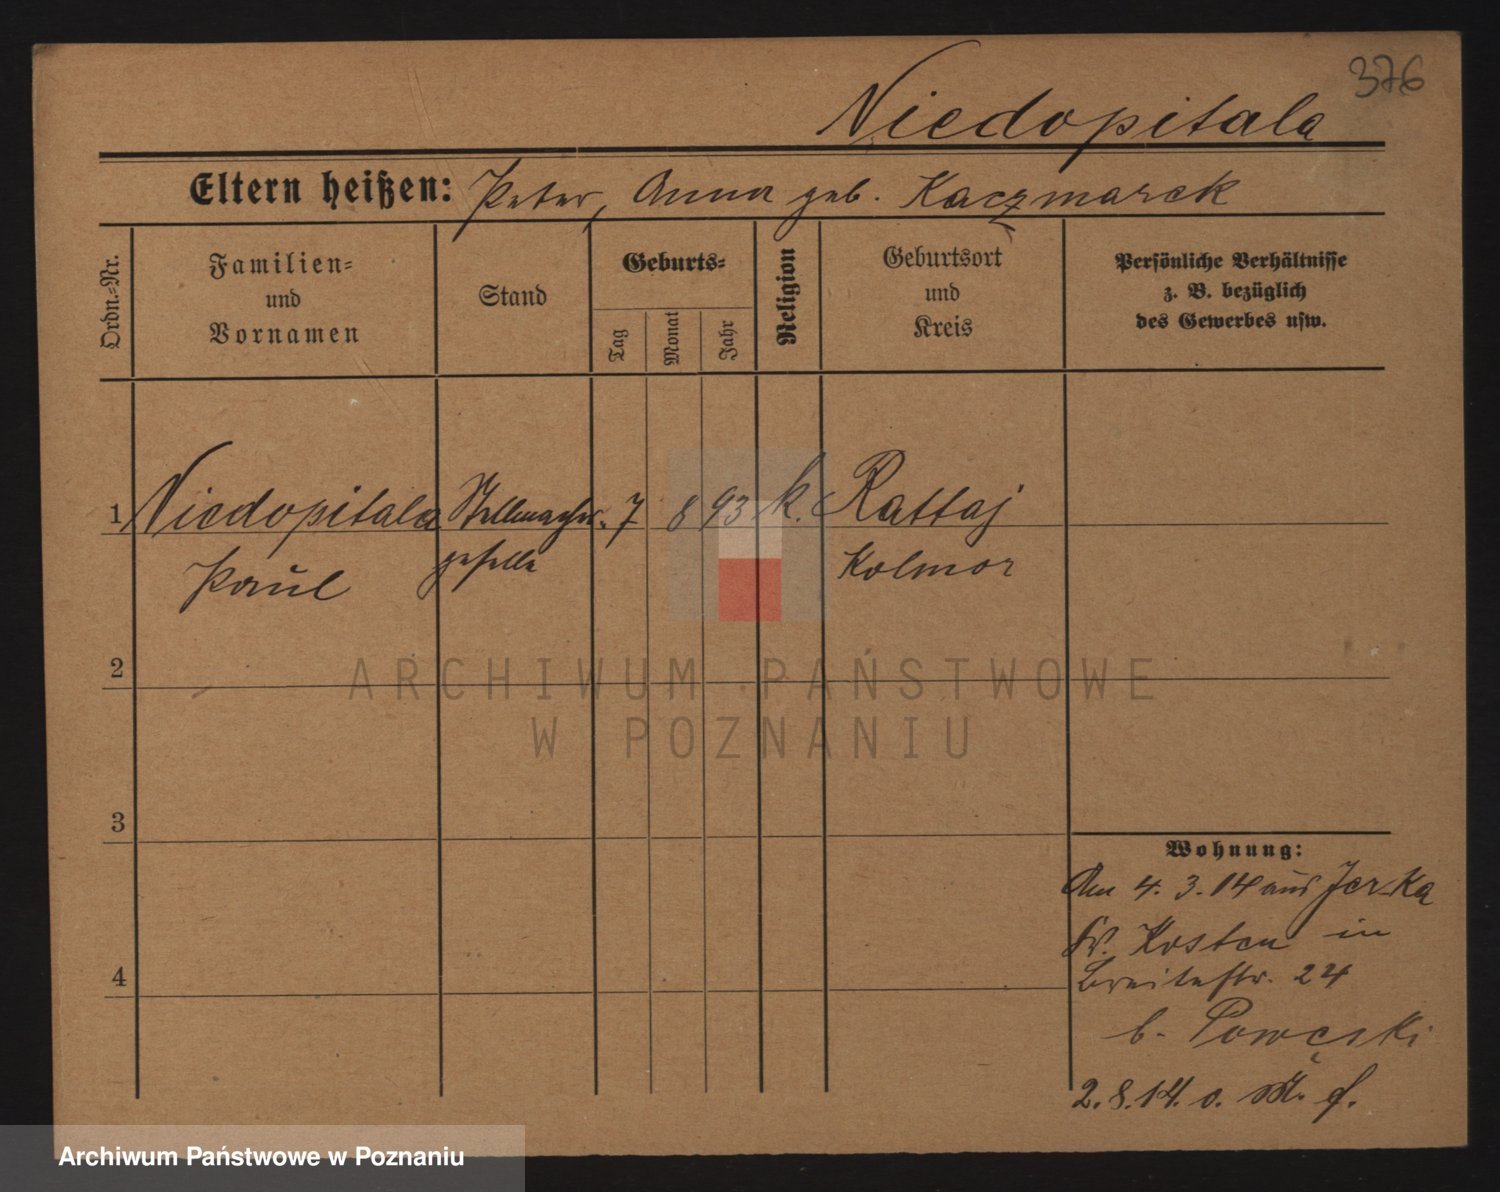 376
Niedopitala
Eltern heißen: Peter, Anna geb. Kaczmarek
Ordn.-Nr.
Familien-
und
Vornamen
Stand
Geburts-
Tag
Monat
Jahr
Religion
Geburtsort
und
Kreis
Persönliche Verhältnisse
z. B. bezüglich
des Gewerbes usw.
1 Niedopitala Stellmacher- 7 8 93 k. Rattaj
Paul geselle Kolmar
2
3
4
Wohnung:
Am 4. 3. 14 aus Jerka
Kr. Kosten in
Breitestr. 24
b. Powęski
2. 8. 14. o.
ARCHIWUM PAŃSTWOWE
W POZNANIU
Archiwum Państwowe w Poznaniu